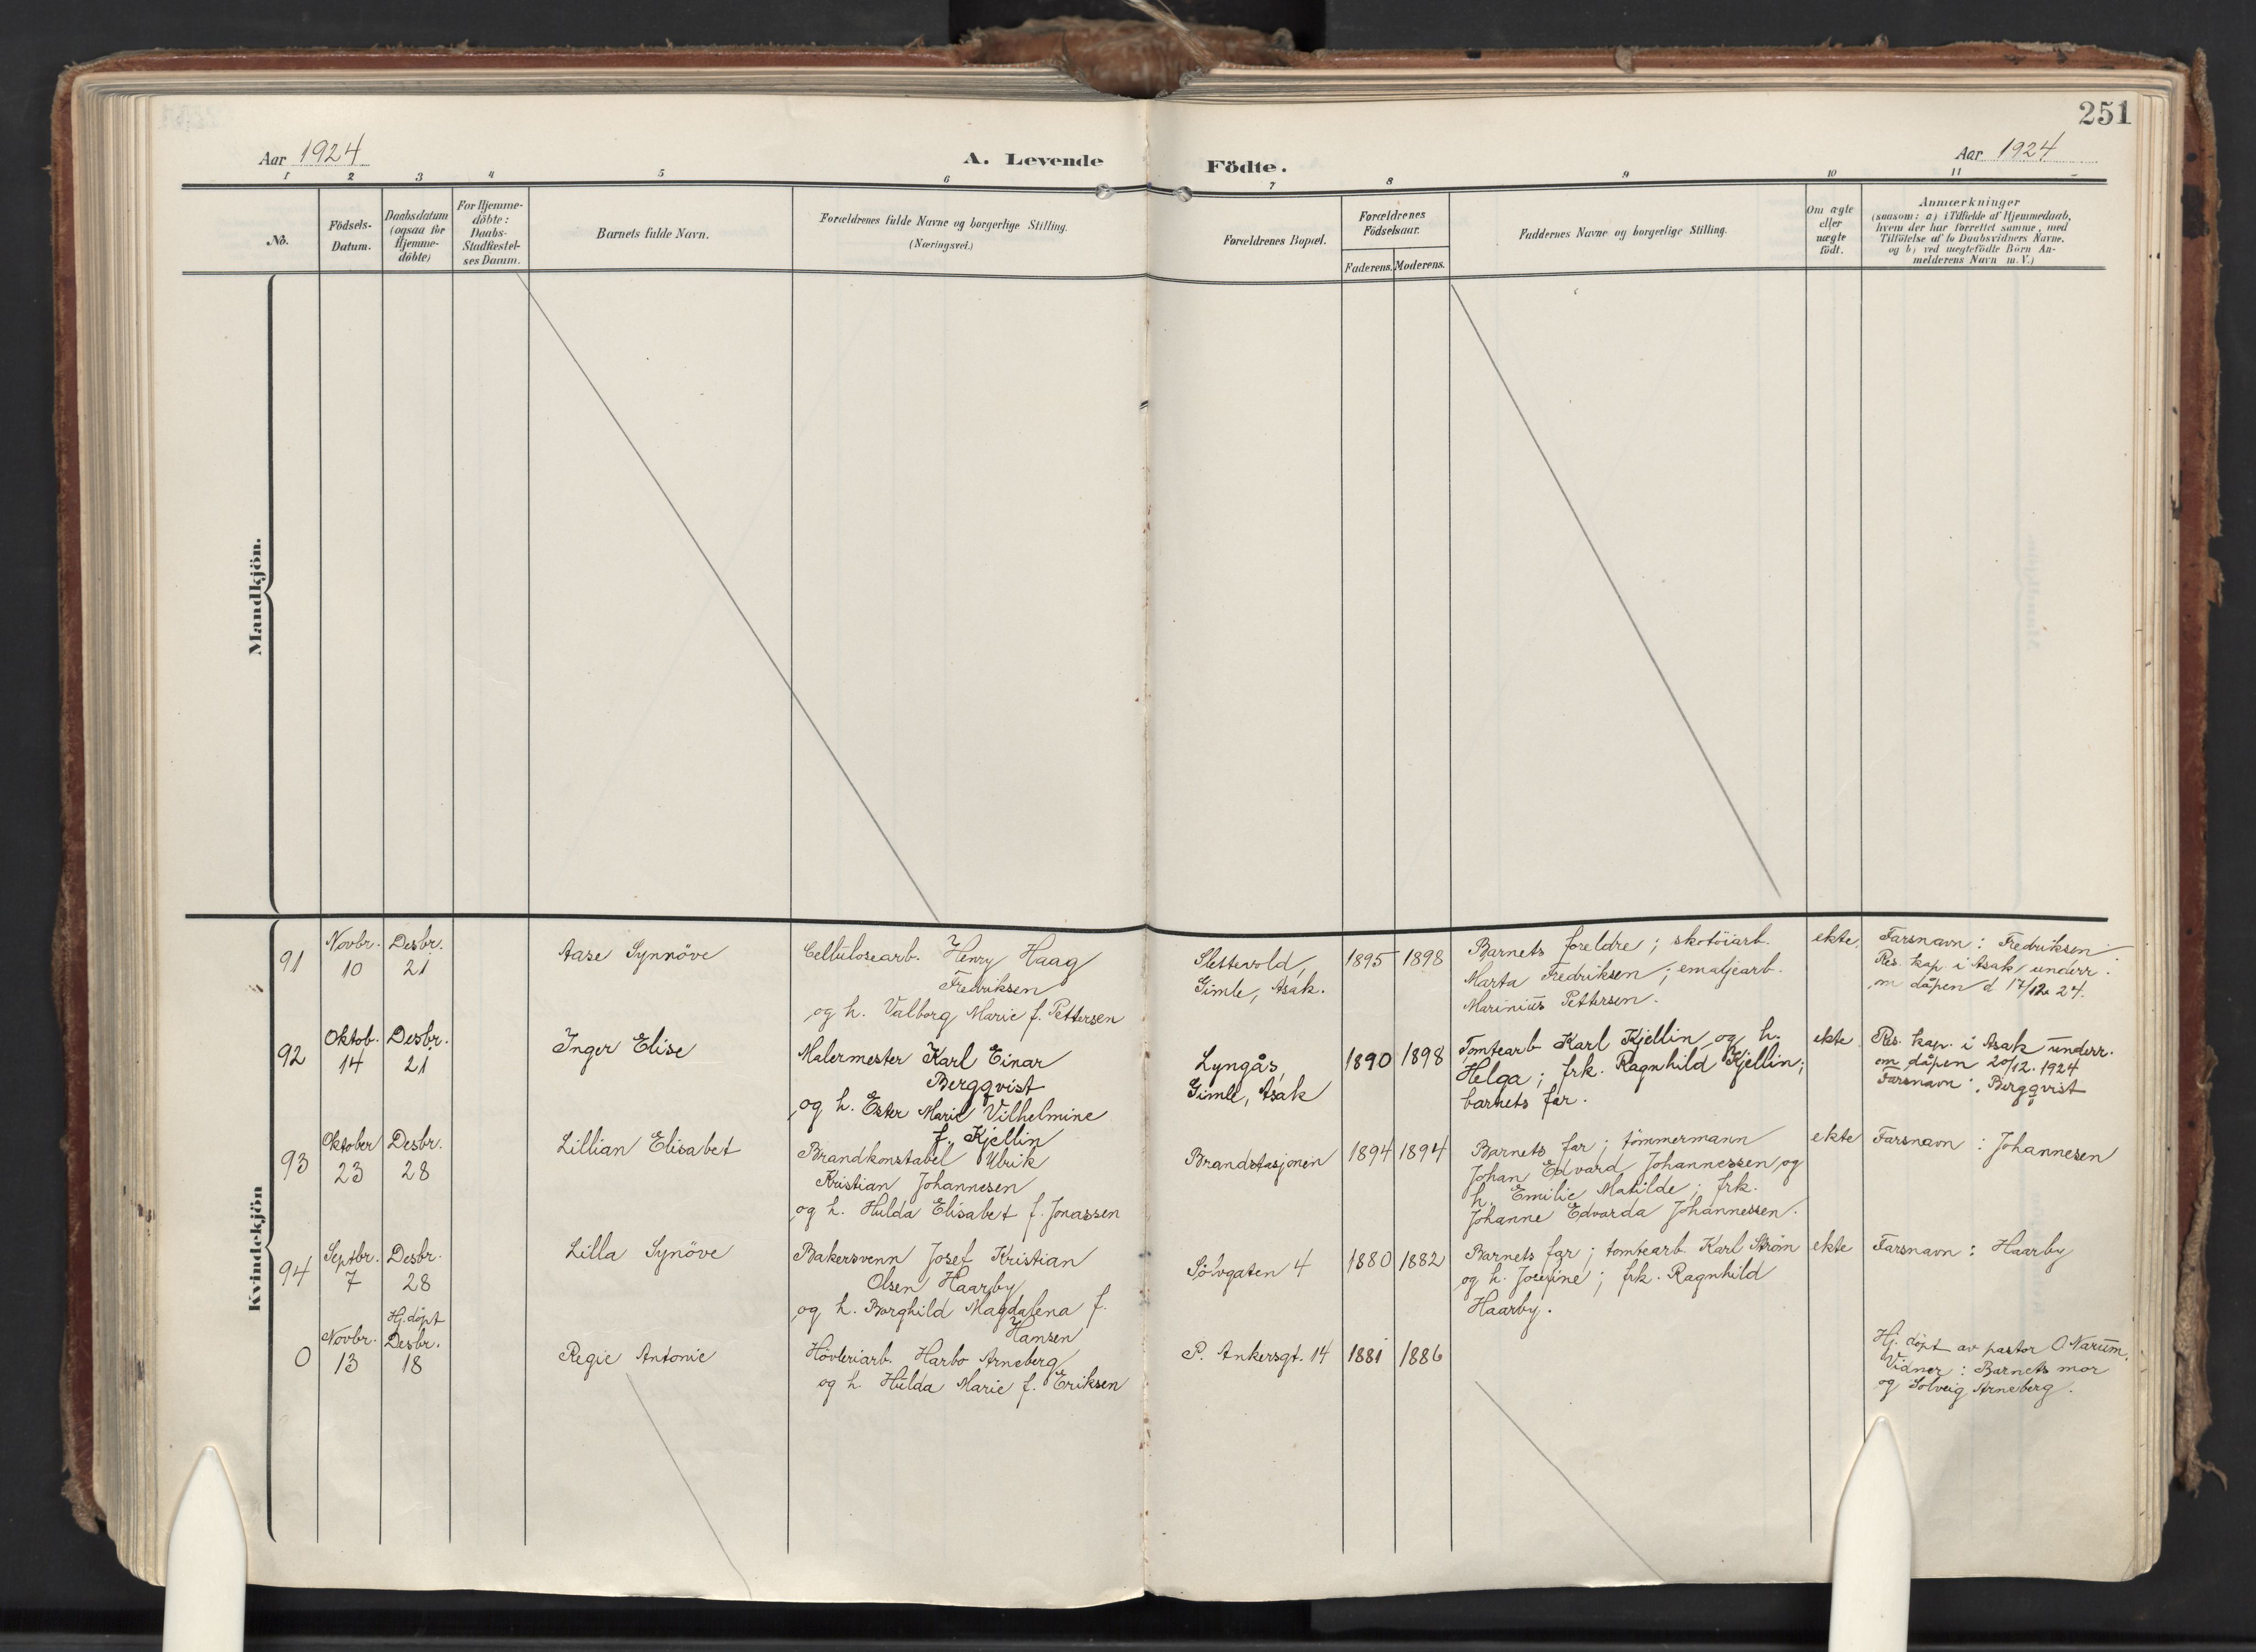 251
Aar 1924
A. Levende
Födte.
Aar 1924
1 2 3 4 5 6 7 8 9 10 11
No.
Födsels-
Datum.
Daabsdatum
(ogsaa for
Hjemme-
döbte)
For Hjemme-
döbte:
Daabs-
Stadfæstel-
ses Datum.
Barnets fulde Navn.
Forældrenes fulde Navne og borgerlige Stilling.
(Næringsvei.)
Forældrenes Bopæl.
Forældrenes
Födselsaar.
Faderens. Moderens.
Faddernes Navne og borgerlige Stilling.
Om ægte
eller
uægte
födt.
Anmærkninger
(saasom: a) i Tilfælde af Hjemmedaab,
hvem der har forrettet samme, med
Tilföielse af to Daabsvidners Navne.
og b) ved uægtefödte Börn An-
melderens Navn m. V.)
Mandkjön.
Kvindekjön
91
Novbr.
10
Desbr.
21
Aase Synnöve
Cellulosearb. Henry Haag
Fredriksen
og h. Valborg Marie f. Pettersen
Slettevold,
Gimle, Asak.
1895 1898
Barnets foreldre; skotöiarb.
Marta Fredriksen; emaljearb.
Marinius Pettersen.
ekte.
Farsnavn: Fredriksen
Res. kap. i Asak underr.
om dåpen d. 17/12 24.
92
Oktob.
14
Desbr.
21
Inger Elise
Malermester Karl Einar
Bergqvist
og h. Ester Marie Vilhelmine
f. Kjellin
Lyngås,
Gimle, Asak
1890 1898
Tomtearb. Karl Kjellin og h.
Helga; frk. Ragnhild Kjellin;
barnets far.
ekte
Res. kap. i Asak underr.
om dåpen 20/12. 1924
Farsnavn: Bergqvist
93
Oktober
23
Desbr.
28
Lillian Elisabet
Brandkonstabel Ulrik
Kristian Johannesen
og h. Hulda Elisabet f. Jonassen
Brandstasjonen
1894 1894
Barnets far; tömmermann
Johan Edvard Johannessen og
h. Emilie Matilde; frk.
Johanne Edvarda Johannessen.
ekte
Farsnavn: Johannesen
94
Septbr.
7
Desbr.
28
Lilla Synöve
Bakersvenn Josef Kristian
Olsen Haarby
og h. Borghild Magdalena f.
Hansen
Sölvgaten 4
1880 1882
Barnets far; tomtearb. Karl Ström
og h. Josefine; frk. Ragnhild
Haarby.
ekte
Farsnavn: Haarby
0
Novbr.
13
Hj. döpt
Desbr.
18
Regie Antonie
Hövleriarb. Harbo Arneberg
og h. Hulda Marie f. Eriksen
P. Ankersgt. 14
1881 1886
Hj. döpt av pastor O Narum.
Vidner: Barnets mor
og Solveig Arneberg.